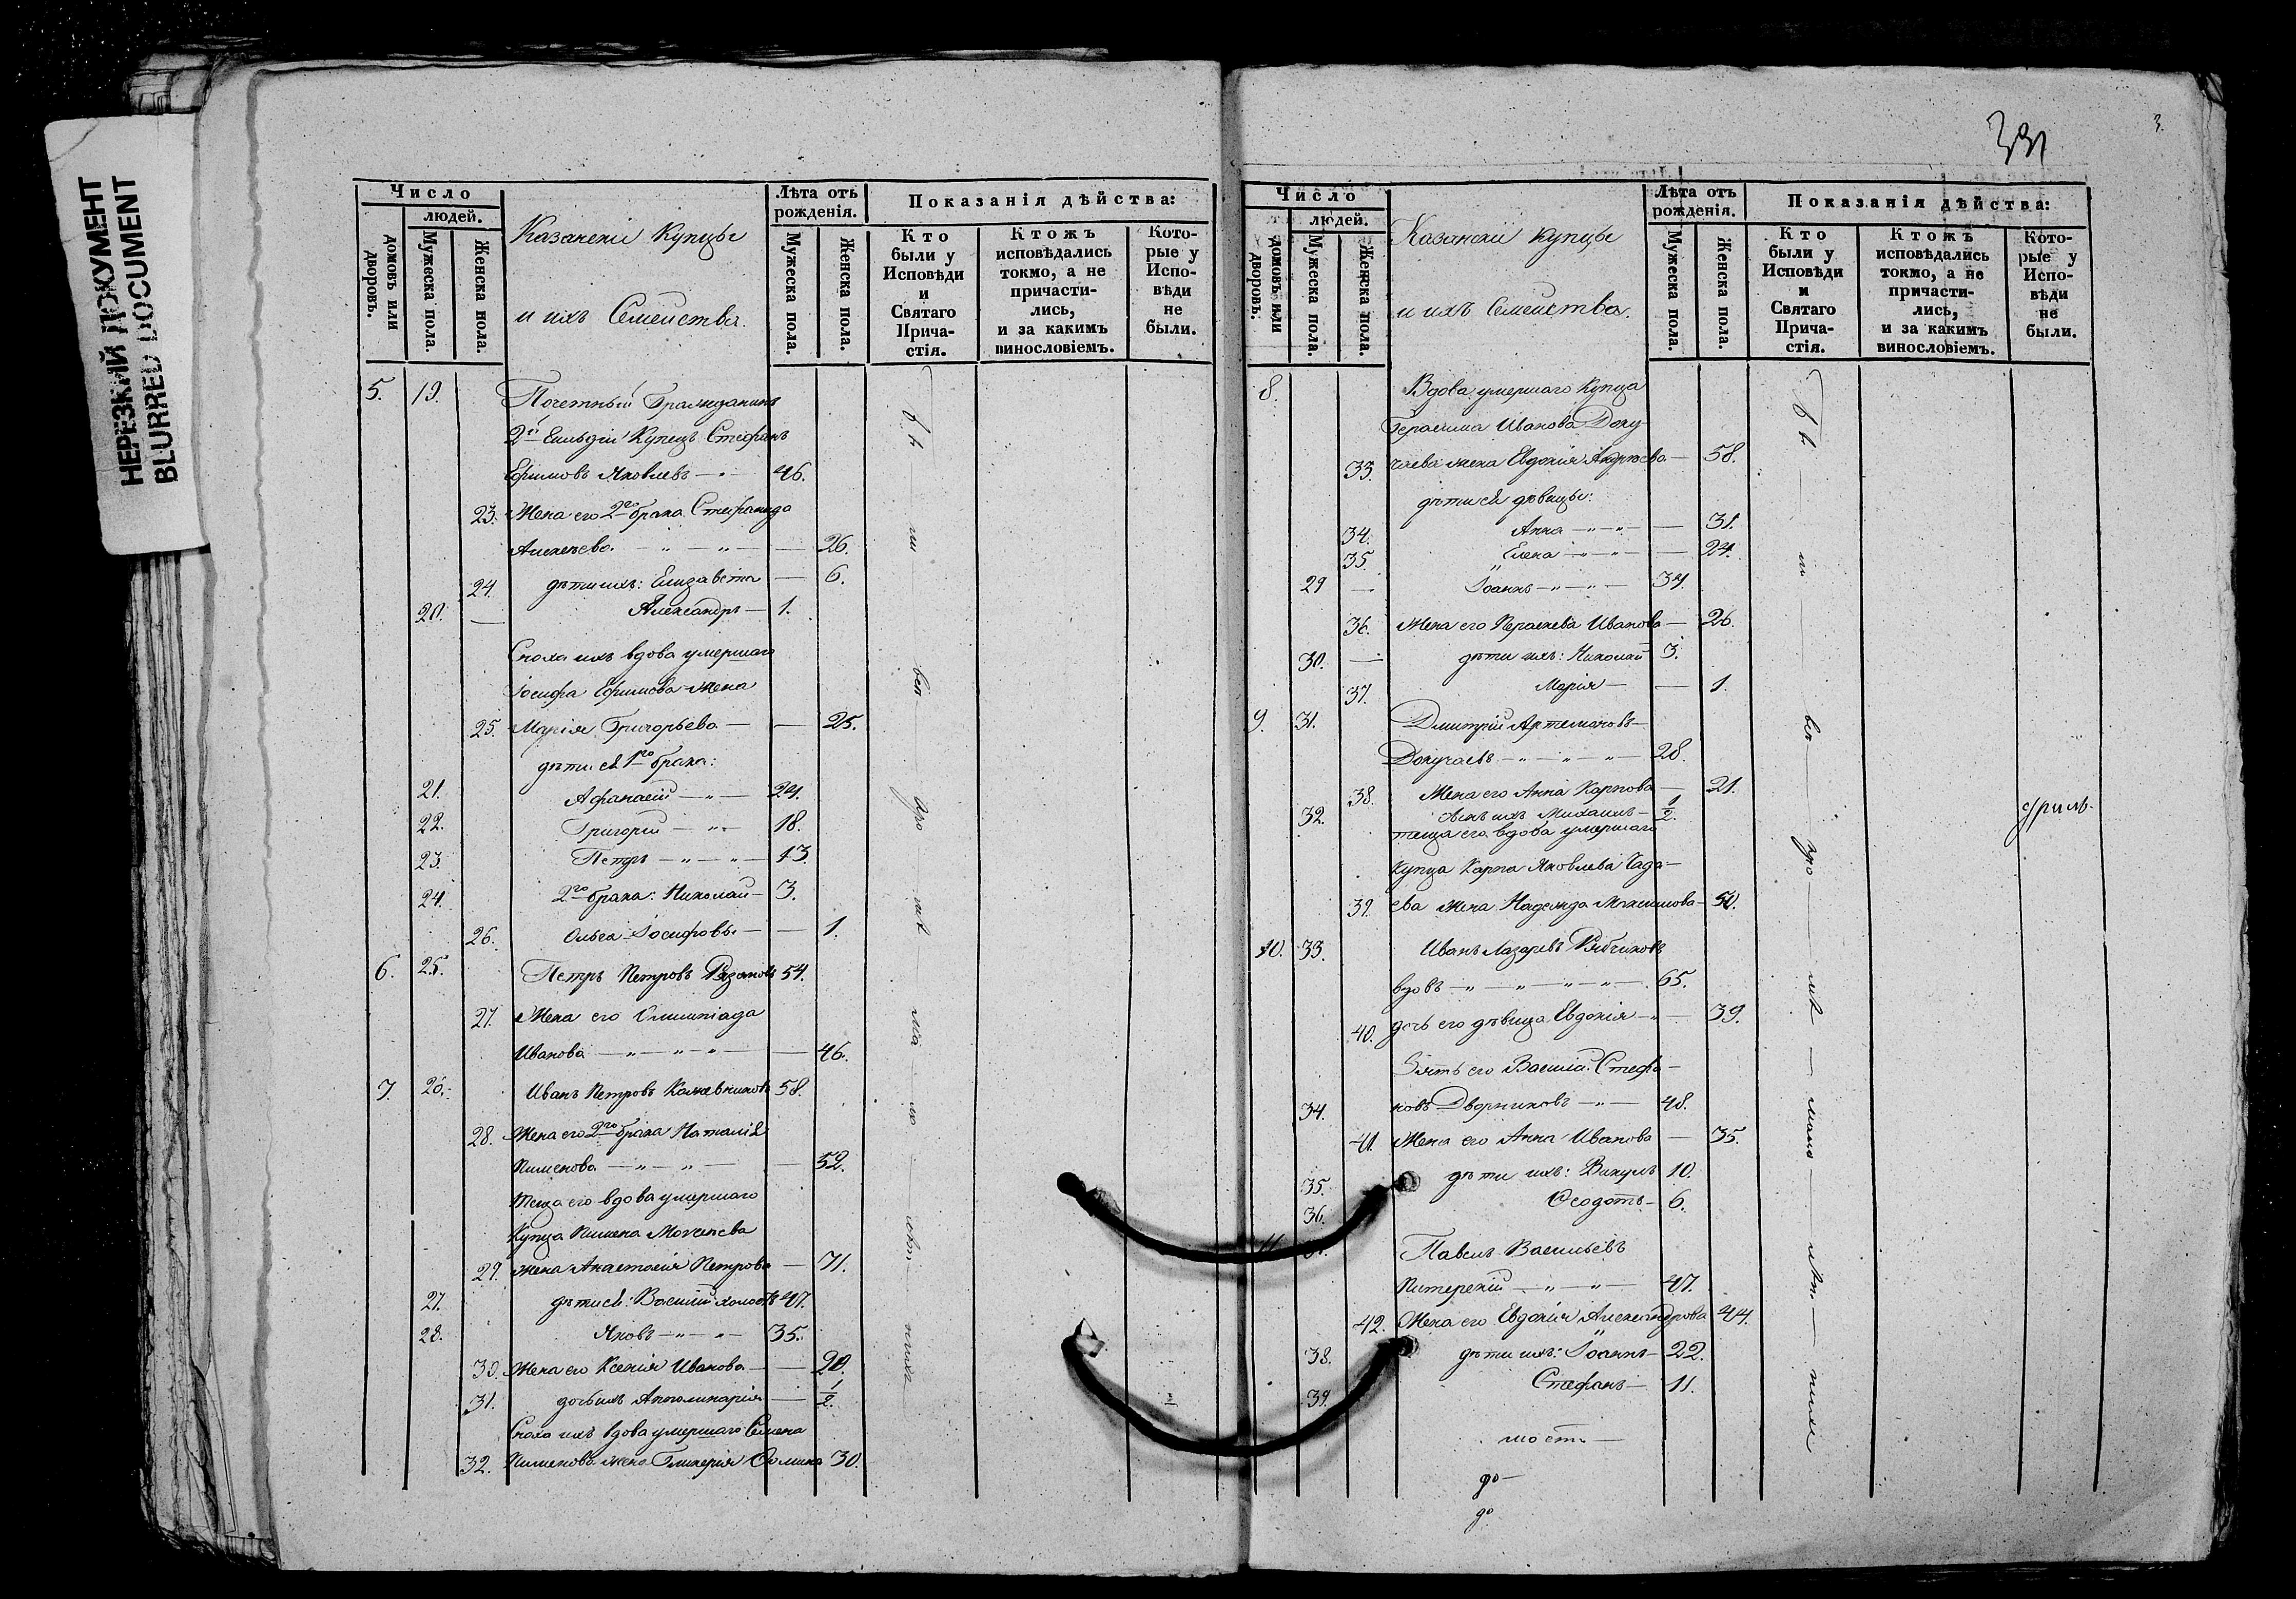 НЕРЕЗКИЙ ДОКУМЕНТ
BLURRED DOCUMENT
Число
людей.
домовъ или дворовъ.
Мужеска пола.
Женска пола.
Казанскіи Купцы
и ихъ Семейства.
Лѣта отъ рожденія.
Мужеска пола.
Женска пола.
Показанія дѣйства:
Кто были у Исповѣди и Святаго Прича-стія.
Ктожъ исповѣдались токмо, а не причасти-лись, и за какимъ винословіемъ.
Кото-рые у Испо-вѣди не были.
5. 19. Почетный Гражданинъ
2й Гильдіи Купецъ Стефанъ
Ефимовъ Яковлевъ — 46.
23. Жена его 2го брака Стефанида
Алексѣева — „ — „ — 26.
24. дѣти ихъ: Елизавета — 6.
20. — Александръ — 1.
Сноха ихъ вдова умершаго
Іосифа Ефимова жена
25. Марія Григорьева — — 25.
дѣти ея 1го брака:
21. Афанасій — „ — 24.
22. Григорій — „ — 18.
23. Петръ — „ — „ — 13.
24. 2го брака: Николай — 3.
26. Ольга Іосифовы — — 1.
6. 25. Петръ Петровъ Рязановъ 54.
27. Жена его Олимпіада
Иванова — „ — „ — „ — 46.
7. 26. Иванъ Петровъ Кожевниковъ 58.
28. Жена его 2го брака Наталія
Пименова — „ — „ — 52.
Теща его вдова умершаго
Купца Пимена
29. Жена Анастасія Петрова — 71.
27. дѣти ея: Василій холостъ 47.
28. Яковъ — „ — „ — 35.
30. Жена его Ксенія Иванова — — 20.
31. дочь ихъ Апполинарія — 1/2.
Сноха ихъ вдова умершаго Семена
32. Пименова жена Гликерія Фомина 30.
331
3.
Число
людей.
домовъ или дворовъ.
Мужеска пола.
Женска пола.
Казанскіи Купцы
и ихъ Семейства.
Лѣта отъ рожденія.
Мужеска пола.
Женска пола.
Показанія дѣйства:
Кто были у Исповѣди и Святаго Прича-стія.
Ктожъ исповѣдались токмо, а не причасти-лись, и за какимъ винословіемъ.
Кото-рые у Испо-вѣди не были.
8. Вдова умершаго Купца
Герасима Иванова Доку
33. чаева жена Евдокія Андреева — 58.
дѣти ея дѣвицы:
34. Анна — „ — „ — 31.
35. Елена — „ — „ — 24.
29 — Іоаннъ — „ — „ — 34.
36. Жена его Параскева Иванова — 26.
30. — дѣти ихъ: Николай 3.
37. Марія — — 1.
9. 31. Дмитрій Артемоновъ
Докучаевъ — „ — „ — „ — 28.
38. Жена его Анна Карпова — 21.
32. сынъ ихъ Михаилъ — 1/2.
теща его вдова умершаго
купца Карпа Яковлева Чада-
39. ева жена Надежда Максимова — 50.
10. 33. Иванъ Лазаревъ Рябчиковъ
вдовъ — „ — „ — „ — „ — 65.
40. дочь его дѣвица Евдокія — „ — 39.
Зять его Василій Стефа-
34. новъ Дворниковъ — „ — 48.
41. Жена его Анна Иванова — 35.
35. дѣти ихъ: Викулъ 10.
36. Ѳеодотъ — 6.
11 37. Павелъ Васильевъ
Питерскій — „ — „ — 47.
42. Жена его Евдокія Александрова 44.
38. дѣти ихъ: Іоаннъ — 22.
39. Стефанъ — 11.